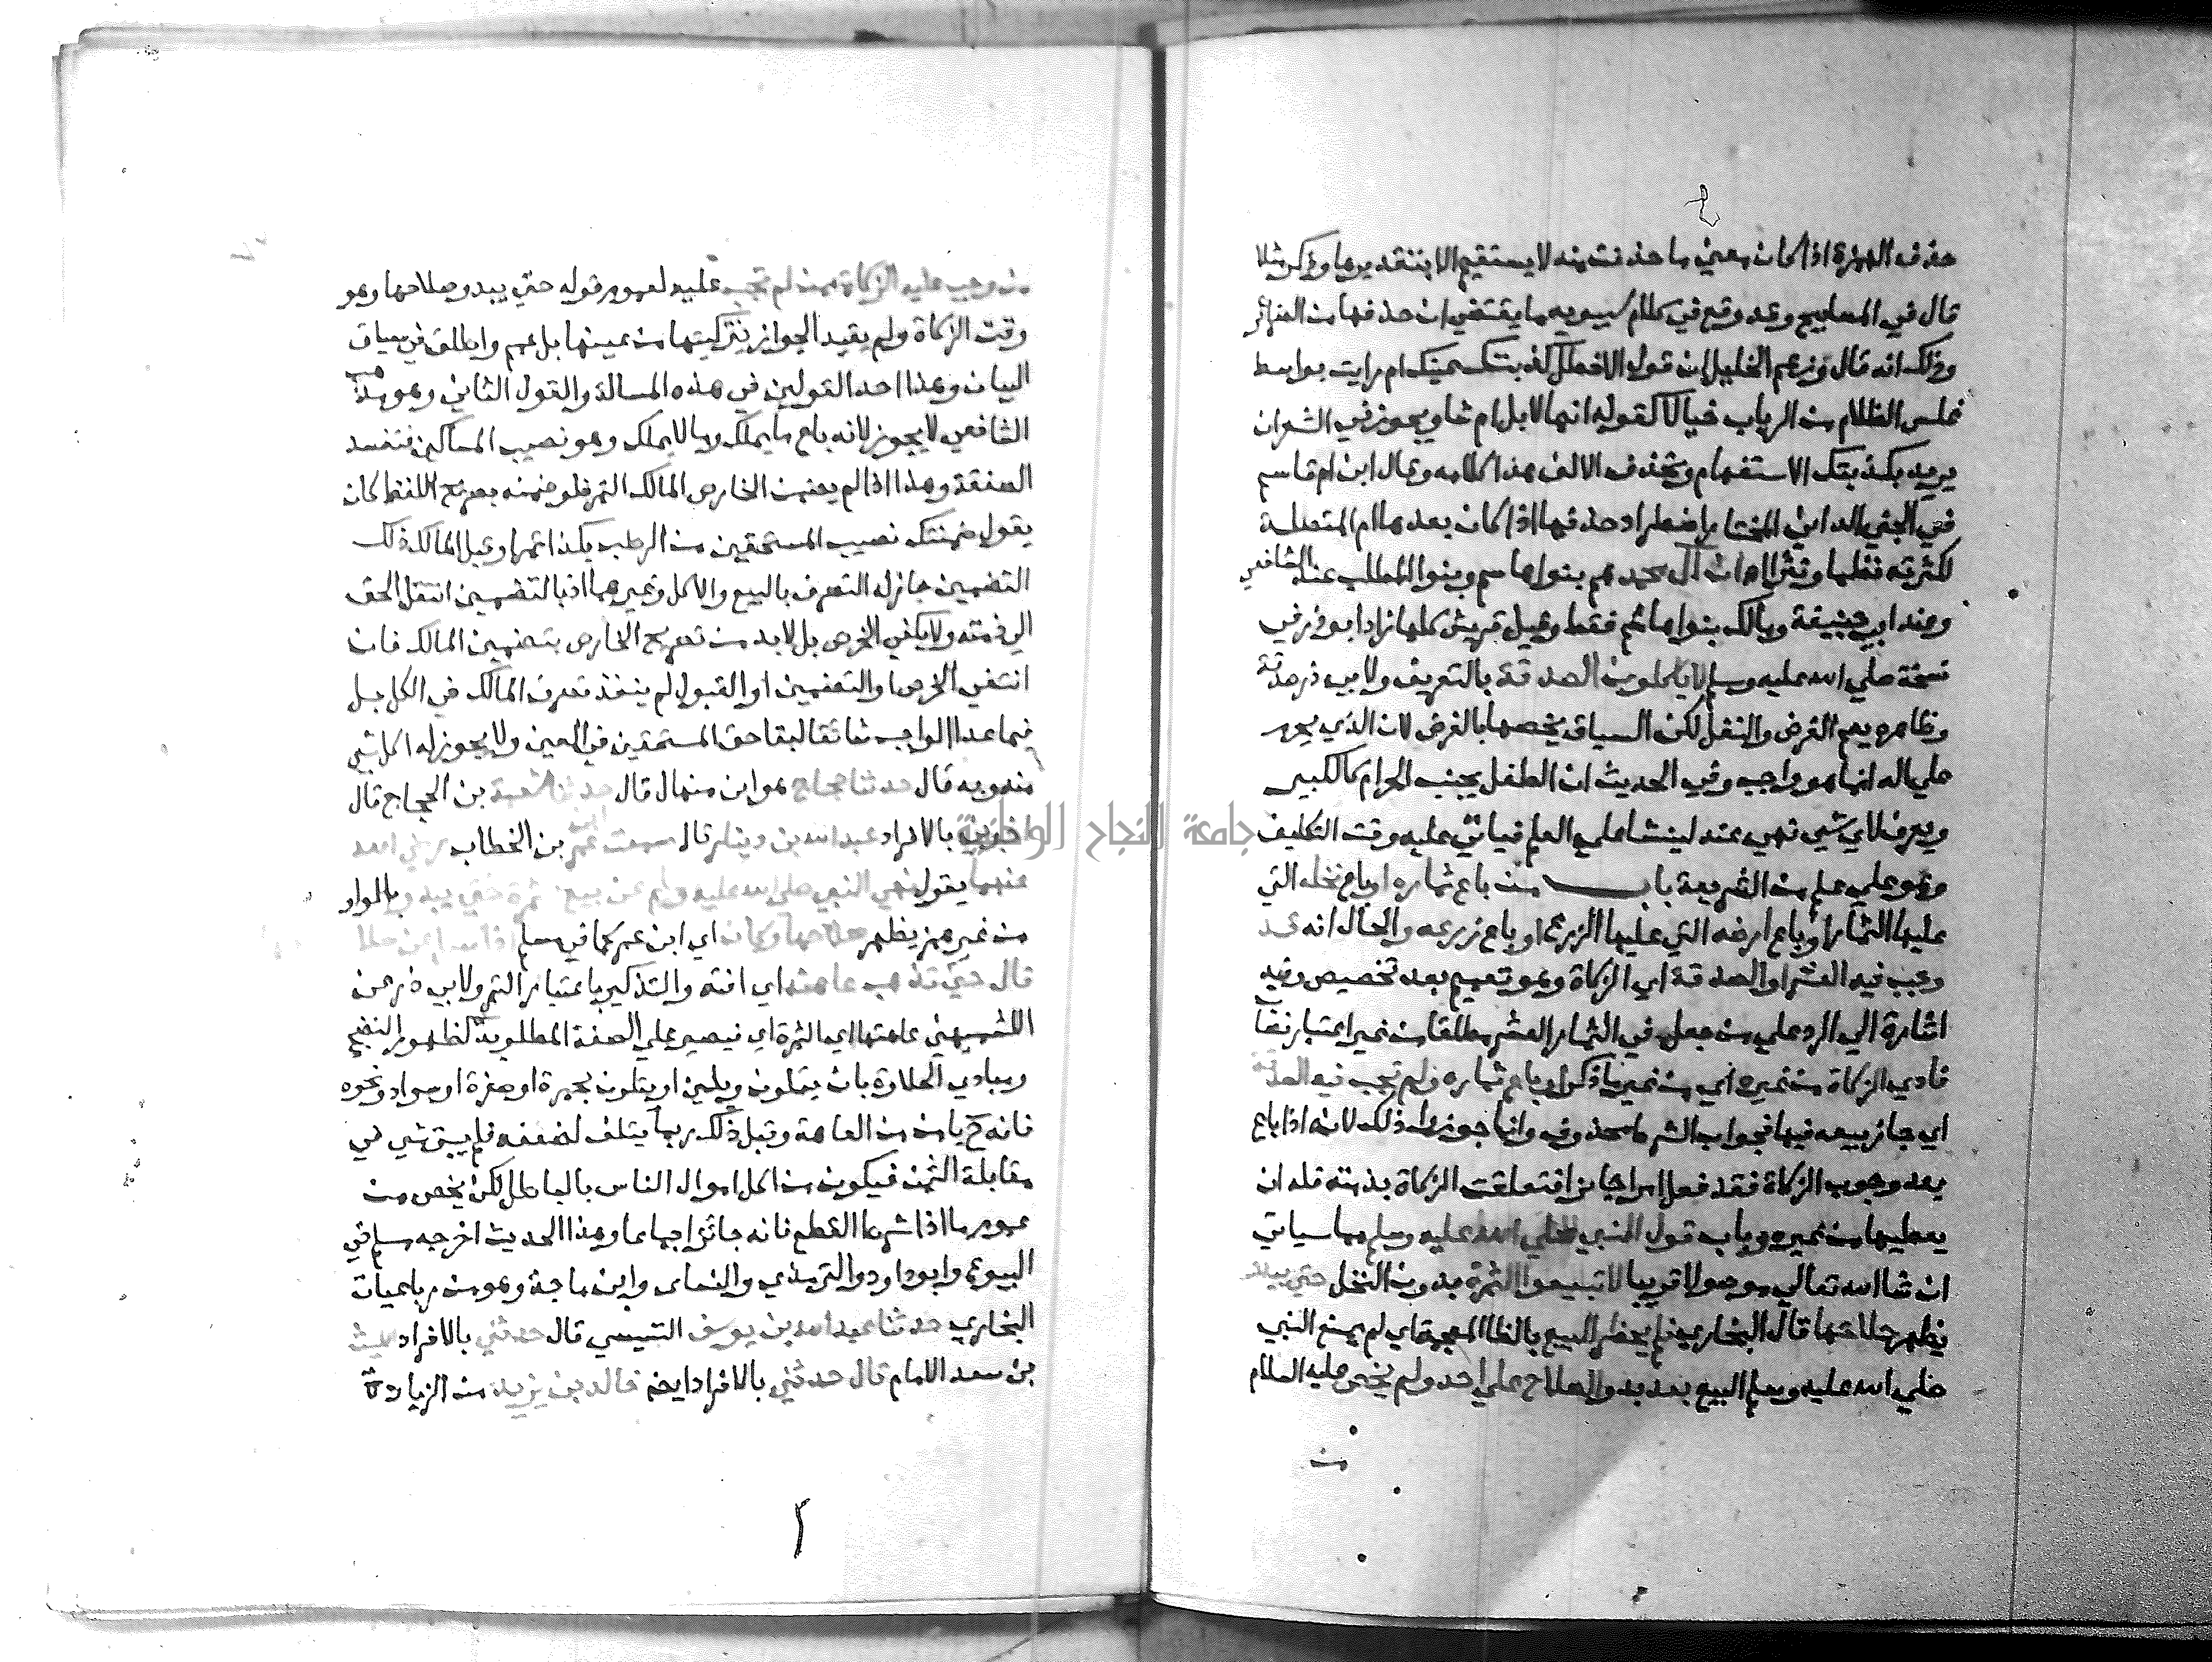 حذف الهمزة اذا كان معني ما حذفت منه لا يستقيم الا بتقديرها وذكر مثلا
قال في المصابيح وقد وقع في كلام سيبويه ما يقتضي ان حذفها من الضرائر
وذلك انه قال وزعم الخليل ان قول الاخطل كذبتك عينك ام رايت بواسط
غلس الظلام من الرباب خيالا كقوله انها لابل ام شا ويجوز في الشعر ان
يريد بكذبتك الاستفهام ويحذف الالف هذا كلامه وقال ابن ام قاسم
في الجني الداني المختار اضطراد حذفها اذا كان بعدها ام المتصلة
لكثرته نظما ونثرا ان آل محمد هم بنوا هاشم وبنوا المطلب عند الشافعي
وعند ابي حنيفة ومالك بنوا هاشم فقط وقيل قريش كلها زاد ابو ذر في
نسخة صلي الله عليه وسلم لا ياكلون الصدقة بالتعريف ولابي ذر صدقة
وظاهره يعم الفرض والنفل لكن السياق يخصها بالفرض لان الذي يحرم
علي اله انما هو واجب وفي الحديث ان الطفل يجنب الحرام كالكبير
ويعرف لاي شي نهي عنه لينشا علي العلم فياتي عليه وقت التكليف
وهو علي علم من الشريعة باب من باع ثماره او باع نخله التي
عليها الثمار او باع ارضه التي عليها الزرع او باع زرعه والحال انه قد
وجب فيه العشر او الصدقة اي الزكاة وهو تعميم بعد تخصيص وفيه
اشارة الي الرد علي من جعل في الثمار العشر مطلقا من غير اعتبار نصاب
فادي الزكاة من غيره اي من غير ما ذكر او باع ثماره ولم تجب فيه الصدقة
اي جاز بيعه فيها فجواب الشرط محذوف وانما جوزوا ذلك لانه اذا باع
بعد وجوب الزكاة فقد فعل امرا جايزا فتعلقت الزكاة بذمته فله ان
يعطيها من غيره وباب قول النبي صلي الله عليه وسلم مما سياتي
ان شا الله تعالي موصولا قريبا لا تبيعوا الثمرة بدون النخل حتي يبدو
يظهر صلاحها قال البخاري فلم يحظر البيع بالظا المعجمة اي لم يمنع النبي
صلي الله عليه وسلم البيع بعد بدو الصلاح علي احد ولم يخص عليه السلام
من
من وجب عليه الزكاة ممن لم تجب عليه لعموم قوله حتي يبدو صلاحها وهو
وقت الزكاة ولم يقيد الجواز بتزكيتها من عينها بل عمم واطلق في سياق
البيان وهذا احد القولين في هذه المسالة والقول الثاني وهو مذهب
الشافعي لا يجوز لانه باع ما يملك وما لا يملك وهو نصيب المساكين فتفسد
الصفقة وهذا اذا لم يضمن الخارص المالك التمر فلو ضمنه بصريح اللفظ كان
يقول ضمنتك نصيب المستحقين من الرطب بكذا تمرا وقبل المالك ذلك
التضمين جاز له التصرف بالبيع والاكل وغيرهما اذ بالتضمين انتقل الحق
الي ذمته ولا يكفي الخرص بل لابد من تصريح الخارص بتضمين المالك فان
انتفي الخرص او التضمين او القبول لم ينفذ تصرف المالك في الكل بل
فيما عدا الواجب شائعا لبقا حق المستحقين في العين ولا يجوز له اكل شي
منه وبه قال حدثنا حجاج هو ابن منهال قال حدثنا شعبة بن الحجاج قال
اخبرني بالافراد عبد الله بن دينار قال سمعت ابن عمر بن الخطاب رضي الله
عنهما يقول نهي النبي صلي الله عليه وسلم عن بيع ثمرة حتي يبدو بالواو
من غير همز يظهر صلاحها وكان اي ابن عمر كما في مسلم اذا سئل عن صلاحها
قال حتي تذهب عاهته اي افته والتذكير باعتبار التمر ولابي ذر عن
الكشميهني عاهتها اي الثمرة اي فيصير علي الصفة المطلوبة كظهور النضج
ومبادي الحلاوة بان يتلون ويلين او يتلون بحمرة او صفرة او سواد ونحوه
فانه ح يامن من العاهة وقبل ذلك ربما يتلف لضعفه فلم يبق شي في
مقابلة الثمن فيكون من اكل اموال الناس بالباطل لكن يخص من
عموم ما اذا شرط القطع فانه جائز اجماعا وهذا الحديث اخرجه مسلم في
البيوع وابو داود والترمذي والنساى وابن ماجة وهو من رباعيات
البخاري حدثنا عبد الله بن يوسف التنيسي قال حدثني بالافراد الليث
بن سعد الامام قال حدثني بالافراد ايضا خالد بن يزيد من الزيادة
جامعة النجاح الوطنية